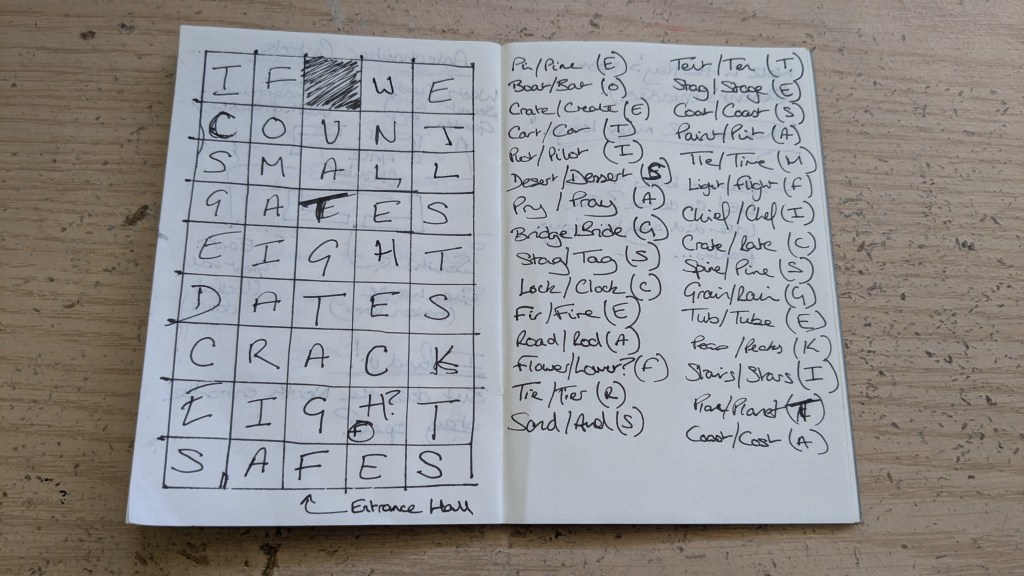 I F W E
C O U N T
S M A L L
G A T E S
E I G H T
D A T E S
C R A C K
E I G H? T
S A F E S
Entrance Hall
Pin/Pine (E)
Boat/Bat (O)
Cart/Car (T)
Plot/Pilot (I)
Desert/Dessert (S)
Pry/Pray (A)
Bridge/Bride (G)
Stag/Tag (S)
Lock/Clock (C)
Fir/Fire (E)
Road/Rod (A)
Flower/Lower? (F)
Tie/Tier (R)
Sand/And (S)
Tent/Ten (T)
Stag/Stage (E)
Coat/Coast (S)
Paint/Pint (A)
Tie/Time (M)
Light/Flight (F)
Chief/Chef (I)
Crate/Rate (C)
Spine/Pine (S)
Grain/Rain (G)
Tub/Tube (E)
(K)
Stairs/Stars (I)
(T)
Coast/Cost (A)